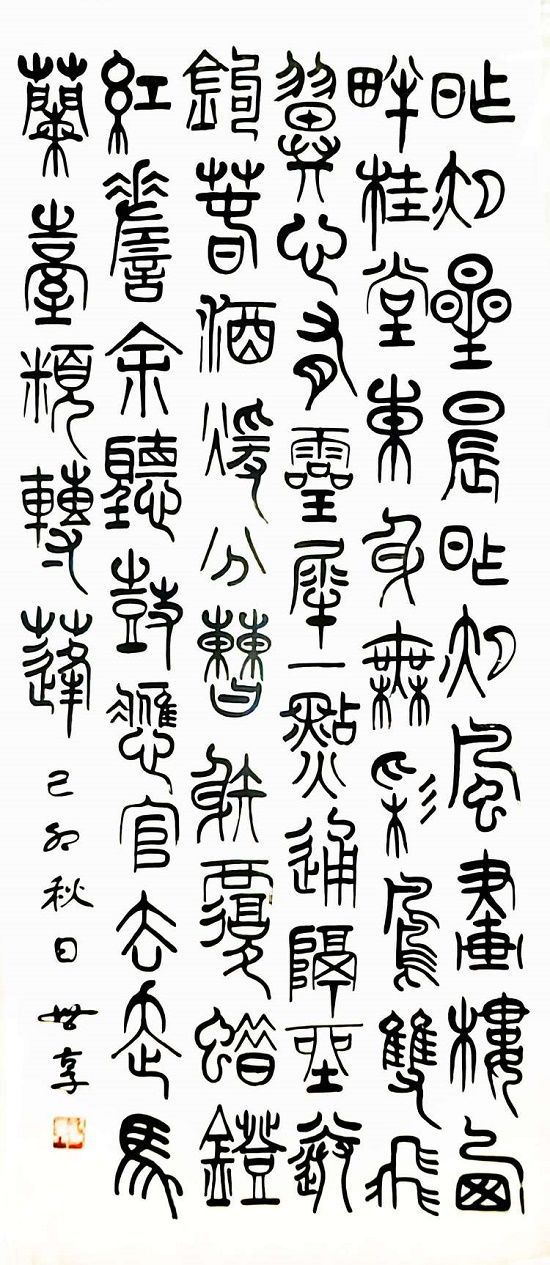 昨夜星辰昨夜風畫樓西
畔桂堂東身無彩鳳雙飛
翼心有靈犀一點通隔座送
鉤春酒暖分曹射覆蠟鐙
紅嗟余聽鼓應官去走馬
蘭臺類轉蓬 己卯秋日 世享